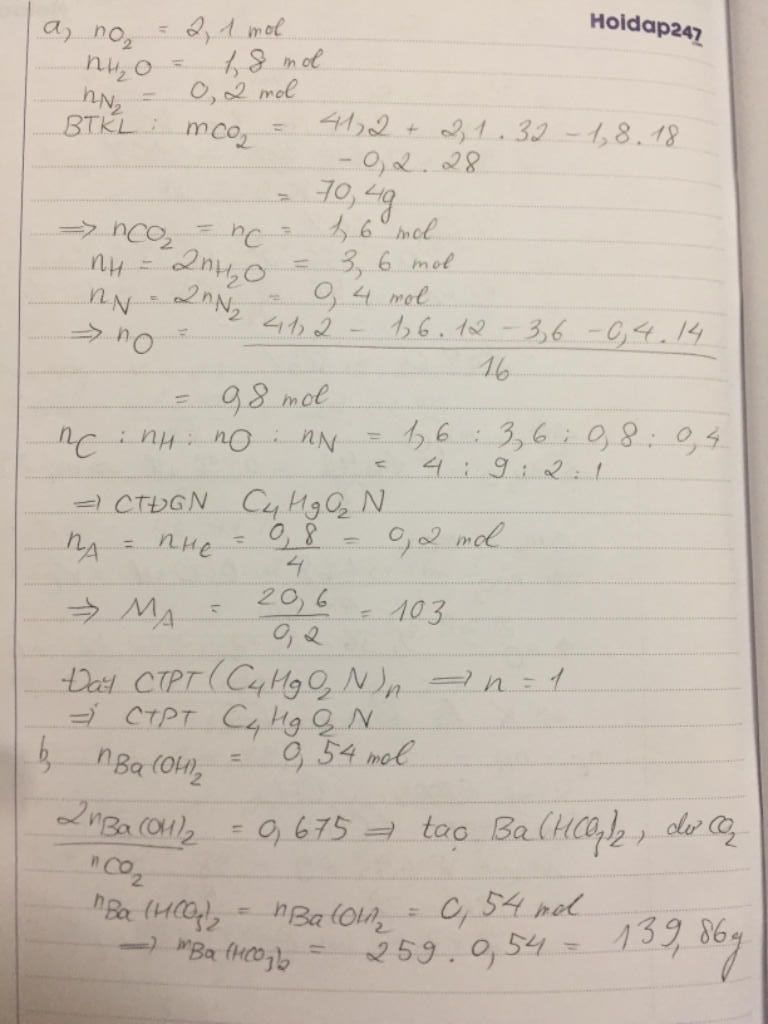 Hoidap247
.com
a, nO₂ = 2,1 mol
nH₂O = 1,8 mol
nN₂ = 0,2 mol
BTKL : mCO₂ = 41,2 + 2,1 . 32 - 1,8 . 18
- 0,2 . 28
= 70,4g
=> nCO₂ = nC = 1,6 mol
nH = 2nH₂O = 3,6 mol
nN = 2nN₂ = 0,4 mol
=> nO = (41,2 - 1,6 . 12 - 3,6 - 0,4 . 14) / 16
= 0,8 mol
nC : nH : nO : nN = 1,6 : 3,6 : 0,8 : 0,4
= 4 : 9 : 2 : 1
=> CTĐGN C₄H₉O₂N
nA = nHe = 0,8 / 4 = 0,2 mol
=> MA = 20,6 / 0,2 = 103
Đặt CTPT (C₄H₉O₂N)n => n = 1
=> CTPT C₄H₉O₂N
b, nBa(OH)₂ = 0,54 mol
2nBa(OH)₂ / nCO₂ = 0,675 => tạo Ba(HCO₃)₂, dư CO₂
nBa(HCO₃)₂ = nBa(OH)₂ = 0,54 mol
=> mBa(HCO₃)₂ = 259 . 0,54 = 139,86g